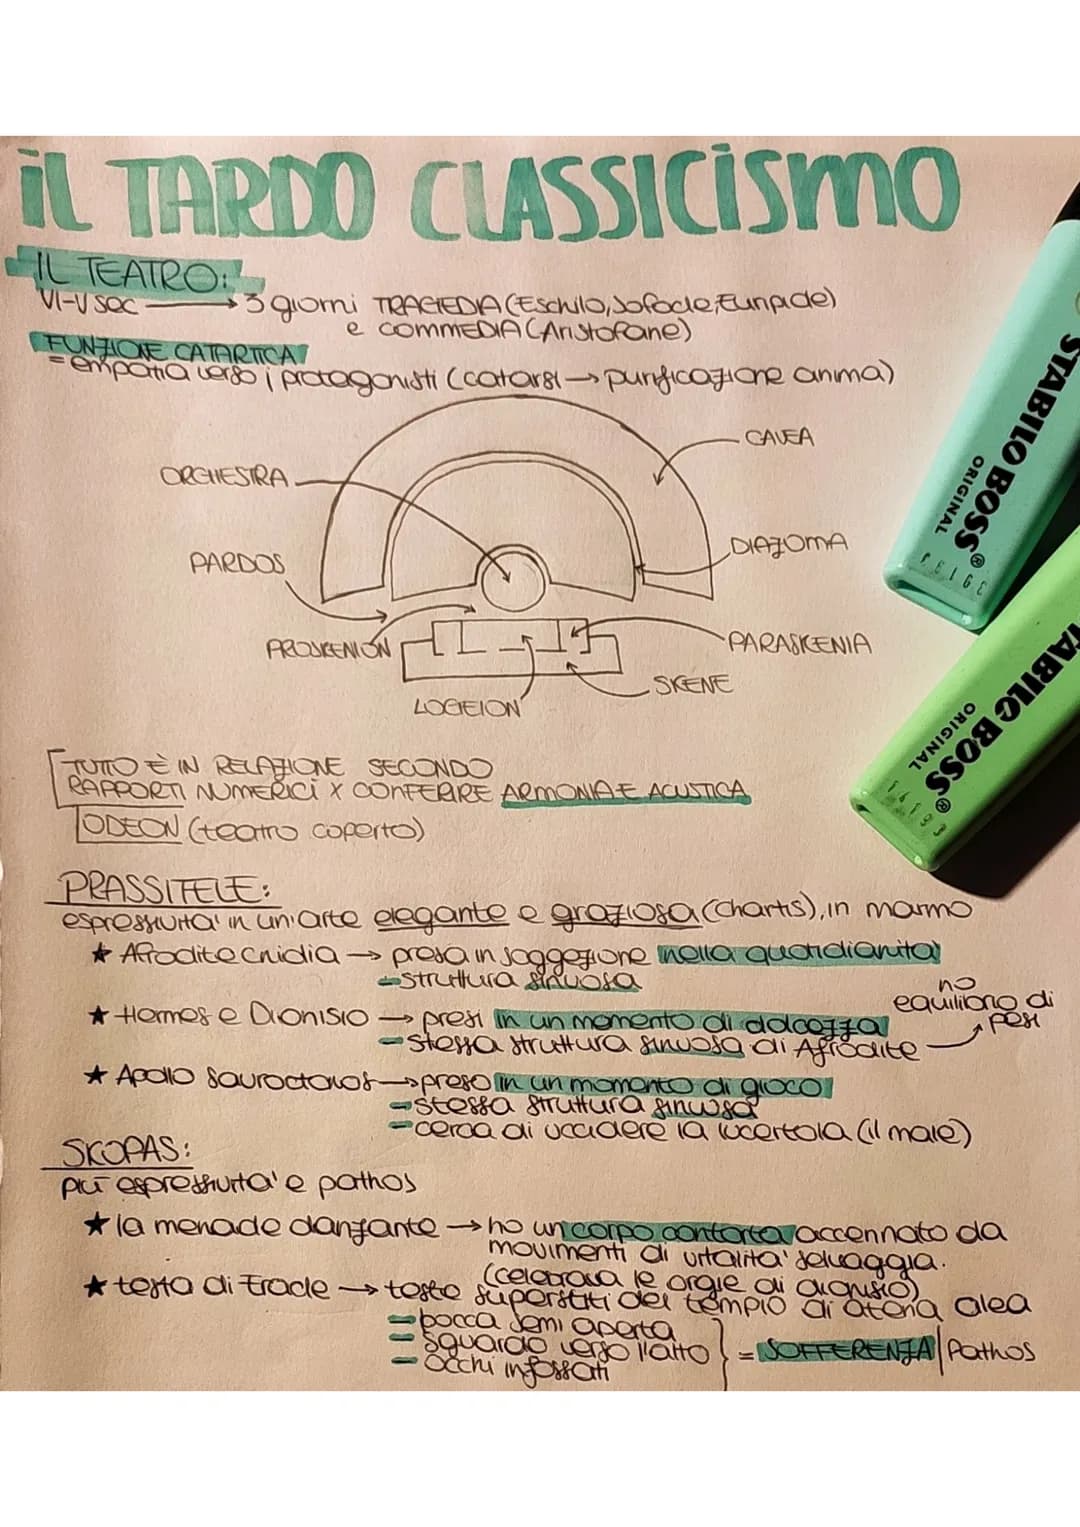 IL TARDO CLASSICISMO
IL TEATRO:
VI-V sec → 3 giorni TRAGEDIA (Eschilo, Sofocle, Euripide)
e COMMEDIA (Aristofane)
FUNZIONE CATARTICA
= empatia verso i protagonisti (catarsi → purificazione anima)
CAVEA
ORCHESTRA
DIAZOMA
PARDOS
PROSKENION
PARASKENIA
SKENE
LOGEION
TUTTO È IN RELAZIONE SECONDO
RAPPORTI NUMERICI X CONFERIRE ARMONIA E ACUSTICA
ODEON (teatro coperto)
PRASSITELE:
espressivita' in un'arte elegante e graziosa (chartis), in marmo
★ Afrodite cnidia → presa in soggezione nella quotidianita'
- struttura sinuosa
★ Hermes e Dionisio → presi in un momento di dolcezza
- stessa struttura sinuosa di Afrodite → no equilibrio di pesi
★ Apollo Sauroctonos → preso in un momento di gioco
- stessa struttura sinuosa
- cerca di uccidere la lucertola (il male)
SKOPAS:
più espressivita' e pathos
★ la menade danzante → ho un corpo contorto accennato da
movimenti di vitalita' selvaggia.
(celebrava le orgie di dionisio)
★ testa di Eracle → teste superstiti del tempio di atena alea
- bocca semi aperta
- sguardo verso l'alto
- occhi infossati
= SOFFERENZA / Pathos
STABILO BOSS®
ORIGINAL
STABILO BOSS®
ORIGINAL